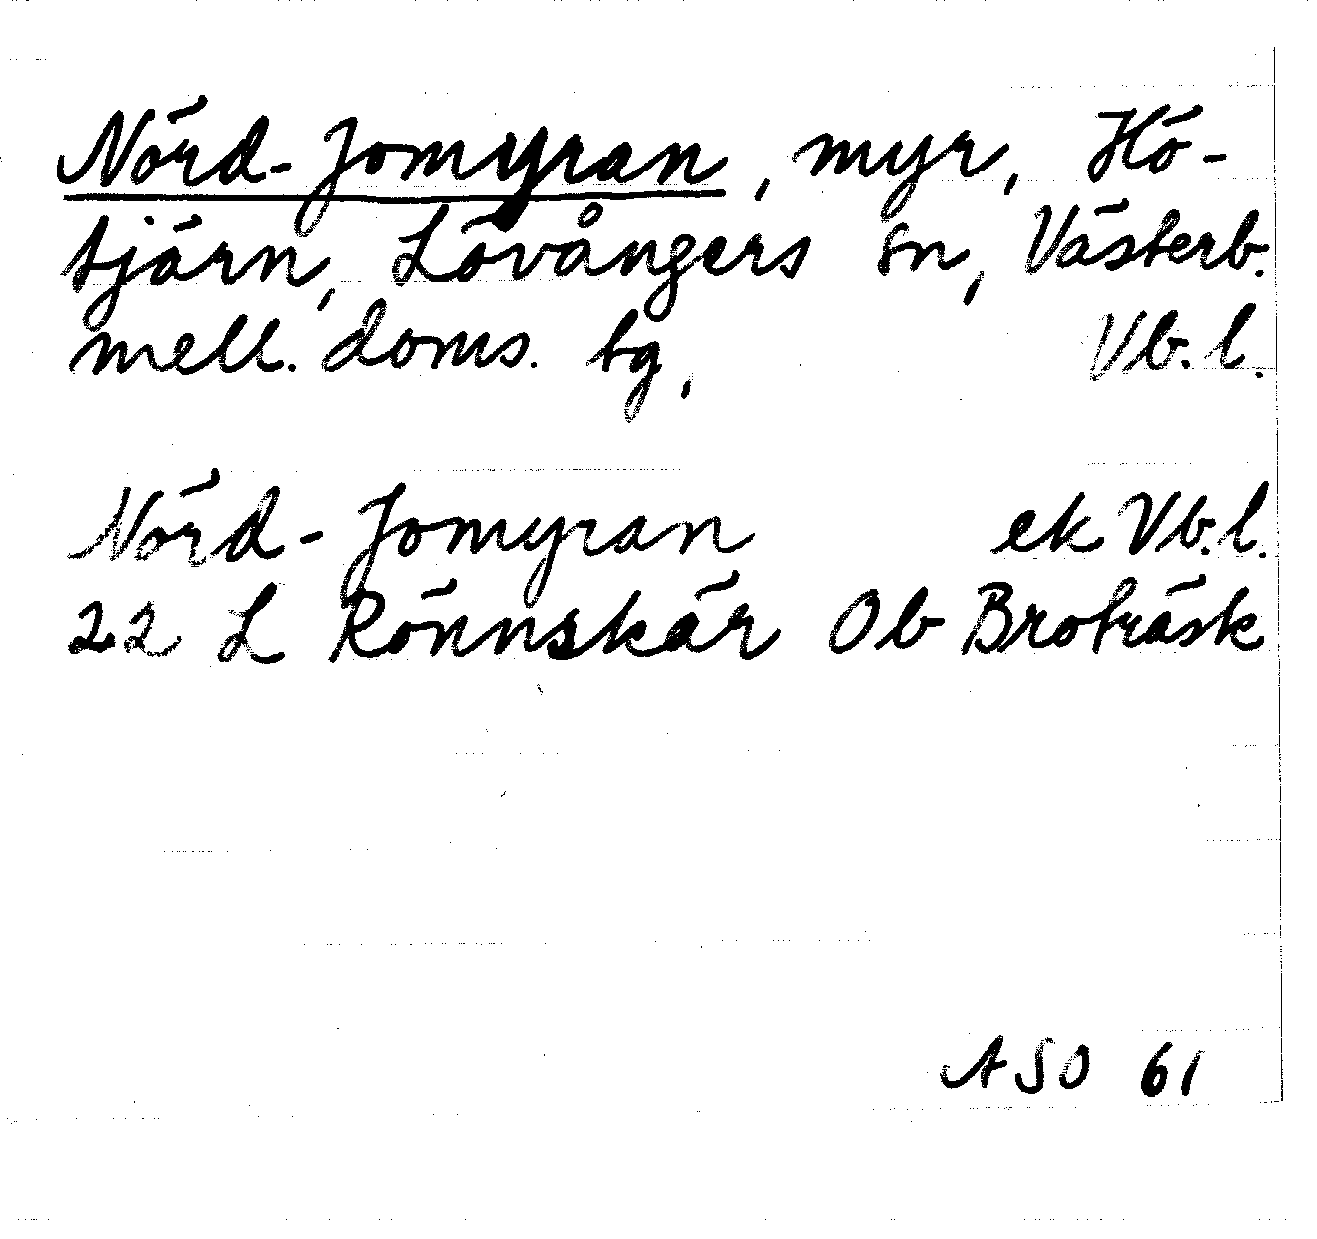 Nörd-Jomyran, myr, Hö-
tjärn, Lövångers sn, Västerb.
mell. doms. tg, Vb. l.
Nörd-Jomyran ek Vb. l.
22 L Rönnskär Ob Broträsk
ASO 61